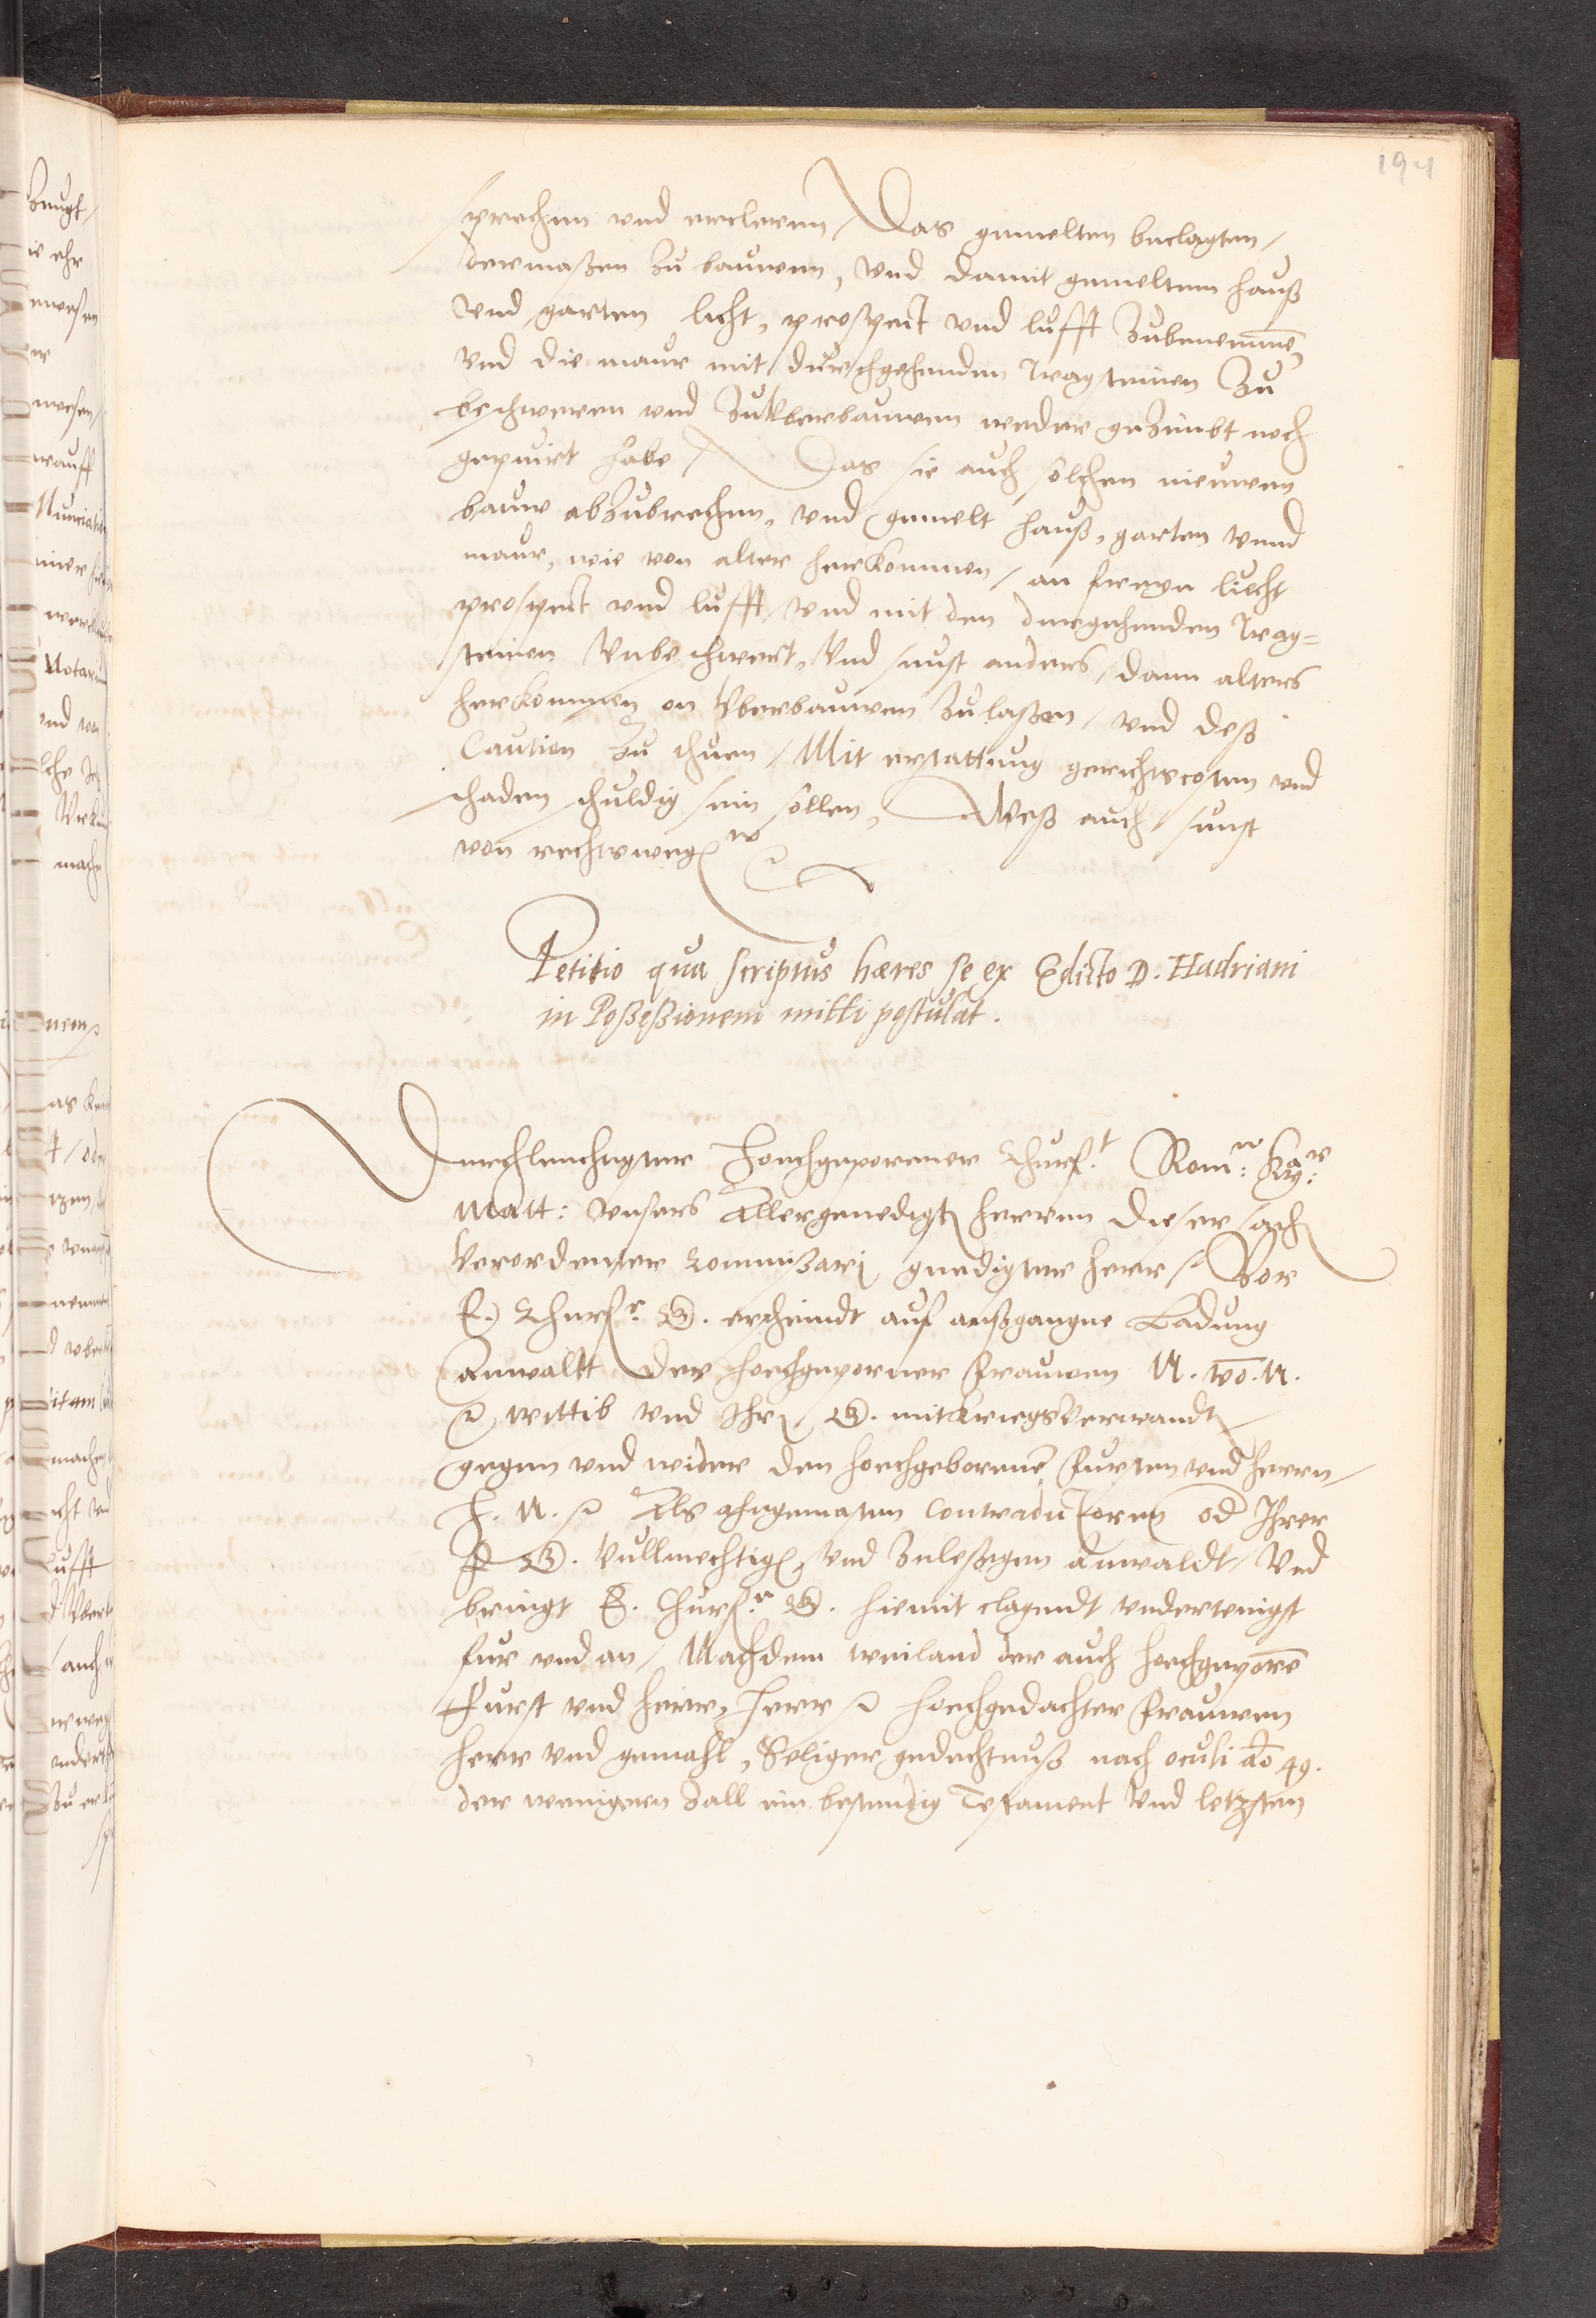 194
sprechen und ercleren / Das gemelten beclagten /
dermaßen zu bauwen, und damit gemeltem hauß
und garten licht, prospect und lufft zubenemmen,
und die maur mit durchgehenden Tragsteinen zu
beschweren und zu uberbauwen weder gezimbt noch
gepuirt habe / Das sie auch solchen nieuwen
bauw abzubrechen, und gemelt hauß, garten unnd
maur, wie von alter herkommen / an freye liecht
prospect und lufft, und mit den durgehenden Trag=
steinen Unbeschwert, Und sunst anders / dann alters
herkommen on Uberbauwen zulaßen / und deß
Caution zu thuen / Mit erstattung gerichtscosten und
schaden schuldig sein sollen, Weß auch sunst
von rechtswegen
Petitio qua scriptus hæres se ex Edicto D. Hadriani
in Poßeßionem mitti postulat.
Durchleuchtigster Hochgeporner Churf.t Romr: Kayr:
Matt: unsers Allergenedigsten herren dieser sachen
Verordenter Commißari, gnedigster herr / Vor
E. Churf.r G. erscheindt auf außgangne Ladung
Anwaltt der hochgeporner Frauwen N. vo. N.
wittib und Ihren G. mitkriegsverwandten
gegen und wider den hochgebornen Fursten und herrn /
H. N. Als angemasten Contradictoren od Ihrer
F G. Vullmechtigen und zuleßigen Anwaldt / Und
bringt E. Churf.r G. hiemit clagendt undertenigst
fur und an / Nachdem weiland der auch hochgeporen
Furst und herr, Herr hochgedachter Frauwen
herr und gemahl, Seliger gedechtnuß nach oculi Ao 49.
der wenigern Zall ein bestendig Testament und letzsten